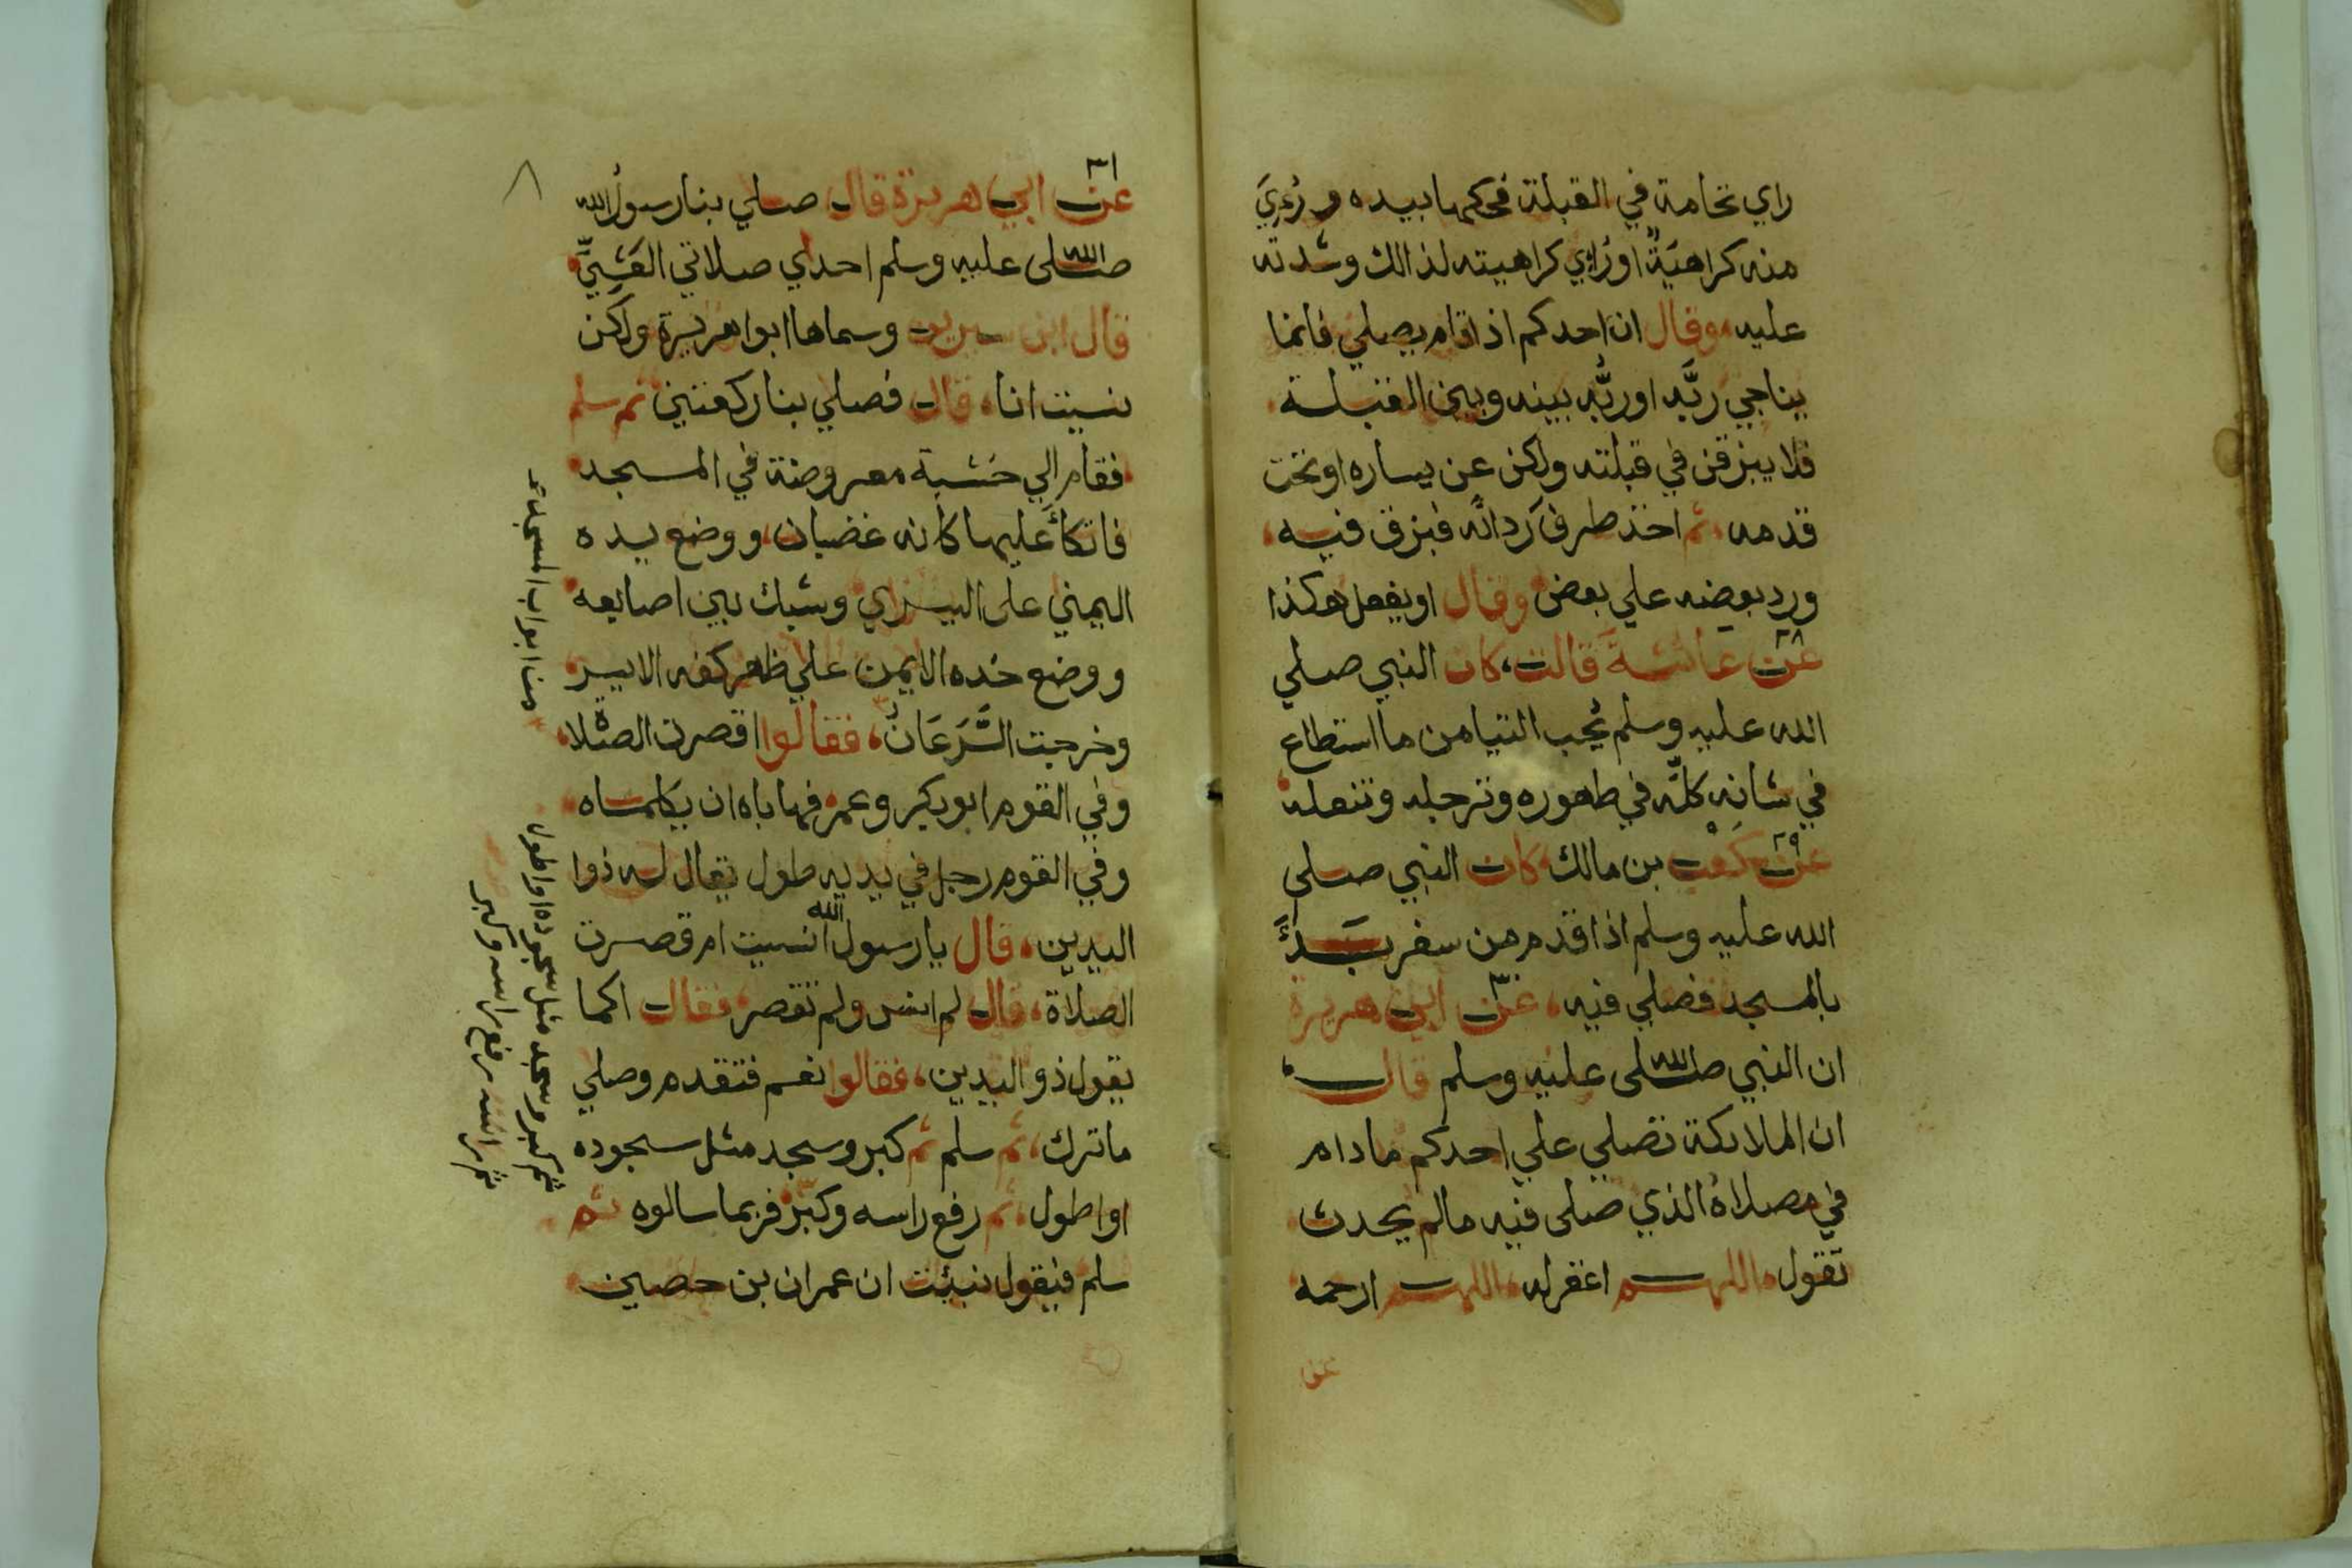 راي نخامة في القبلة فحكها بيده ورُءِيَ
منه كراهيَةً اورُاي كراهيته لذالك وشدته
عليه وقال ان احدكم اذا قام يصلي فانما
يناجي ربَّه اوربُّه بينه وبين القبلة
فلا يبزقن في قبلته ولكن عن يساره اوتحت
قدمه، ثم اخذ طرف ردائه فبزق فيه،
ورد بعضه علي بعض وقال اويفعل هكذا
٢٨
عن عائشة قالت، كان النبي صلي
الله عليه وسلم يُحب التيامن ما استطاع
في شانه كلّه في طهوره وترجله وتنعله
٢٩
عن كعب بن مالك كان النبي صلى
الله عليه وسلم اذا قدم من سفر بَدَأَ
بالمسجد فصلي فيه، عن ابي هريرة
٣٠
ان النبي صلى الله عليه وسلم قال
ان الملائكة تصلي علي احدكم مادام
في مصلاه الذي صلى فيه مالم يحدث
تقول اللهم اغفرله، اللهم ارحمه
عن
٨
٣١
عن ابي هريرة قال صلي بنا رسول الله
صلى الله عليه وسلم احدي صلاتي العَشِيِّ
قال ابن سيرين وسماها ابوا هريرة ولكن
نسيت انا، قال فصلي بنا ركعتين ثم سلم
فقام الي خشبة معروضة في المسجد
فاتكأ عليها كانه غضبان، ووضع يده
اليمني على اليسراي وشبك بين اصابعه
ووضع خده الايمن علي ظهر كفه الايسر
وخرجت السَّرَعَانُ، فقالوا اقصرت الصلاة،
وفي القوم ابوبكر وعمر فهاباه ان يكلماه
وفي القوم رجل في يديه طول يقال له ذوا
اليدين، قال يارسول الله انسيت ام قصرت
الصلاة، قال لم انس ولم تقصر فقال اكما
يقول ذو اليدين، فقالوا نعم فتقدم وصلي
ماترك، ثم سلم ثم كبر وسجد مثل سجوده
اواطول، ثم رفع راسه وكبّر فربما سالوه ثم
سلم فيقول نبيئت ان عمران بن حصين
من ابواب المسجد
ثم كبر وسجد مثل سجوده اواطول
ثم رفع راسه وكبر